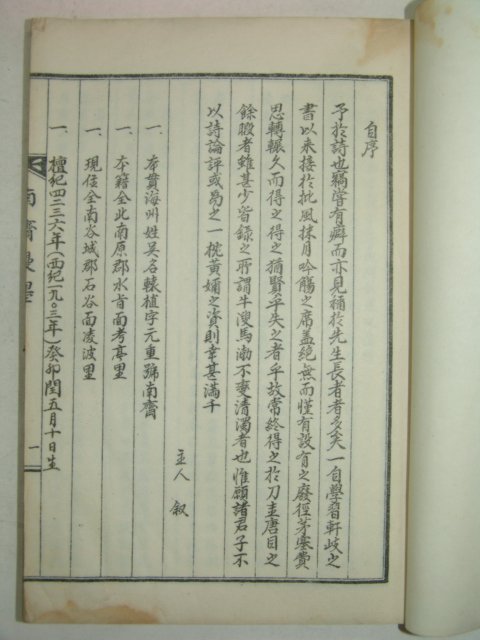 自序
予於詩也竊嘗有癖而亦見稱於先生長者者多矣一自學習軒岐之
書以來接於批風抹月吟觴之席盖絶無而僅有設有之廢徑茅塞費
思轉輾久而得之得之猶賢乎失之者乎故常終得之於刀圭唐目之
餘暇者雖甚少皆錄之所謂牛溲馬渤不変清濁者也惟願諸君子不
以詩論評或爲之一梡黃嬭之資則幸甚滿千
主人 叙
一、本貫海州姓吳名轅植字元重號南齋
一、本籍全北南原郡水旨面考亭里
一、現住全南谷城郡石谷面凌波里
一、檀紀四二三六年(西紀一九〇三年)癸卯閏五月十日生
南齋漫墨
一